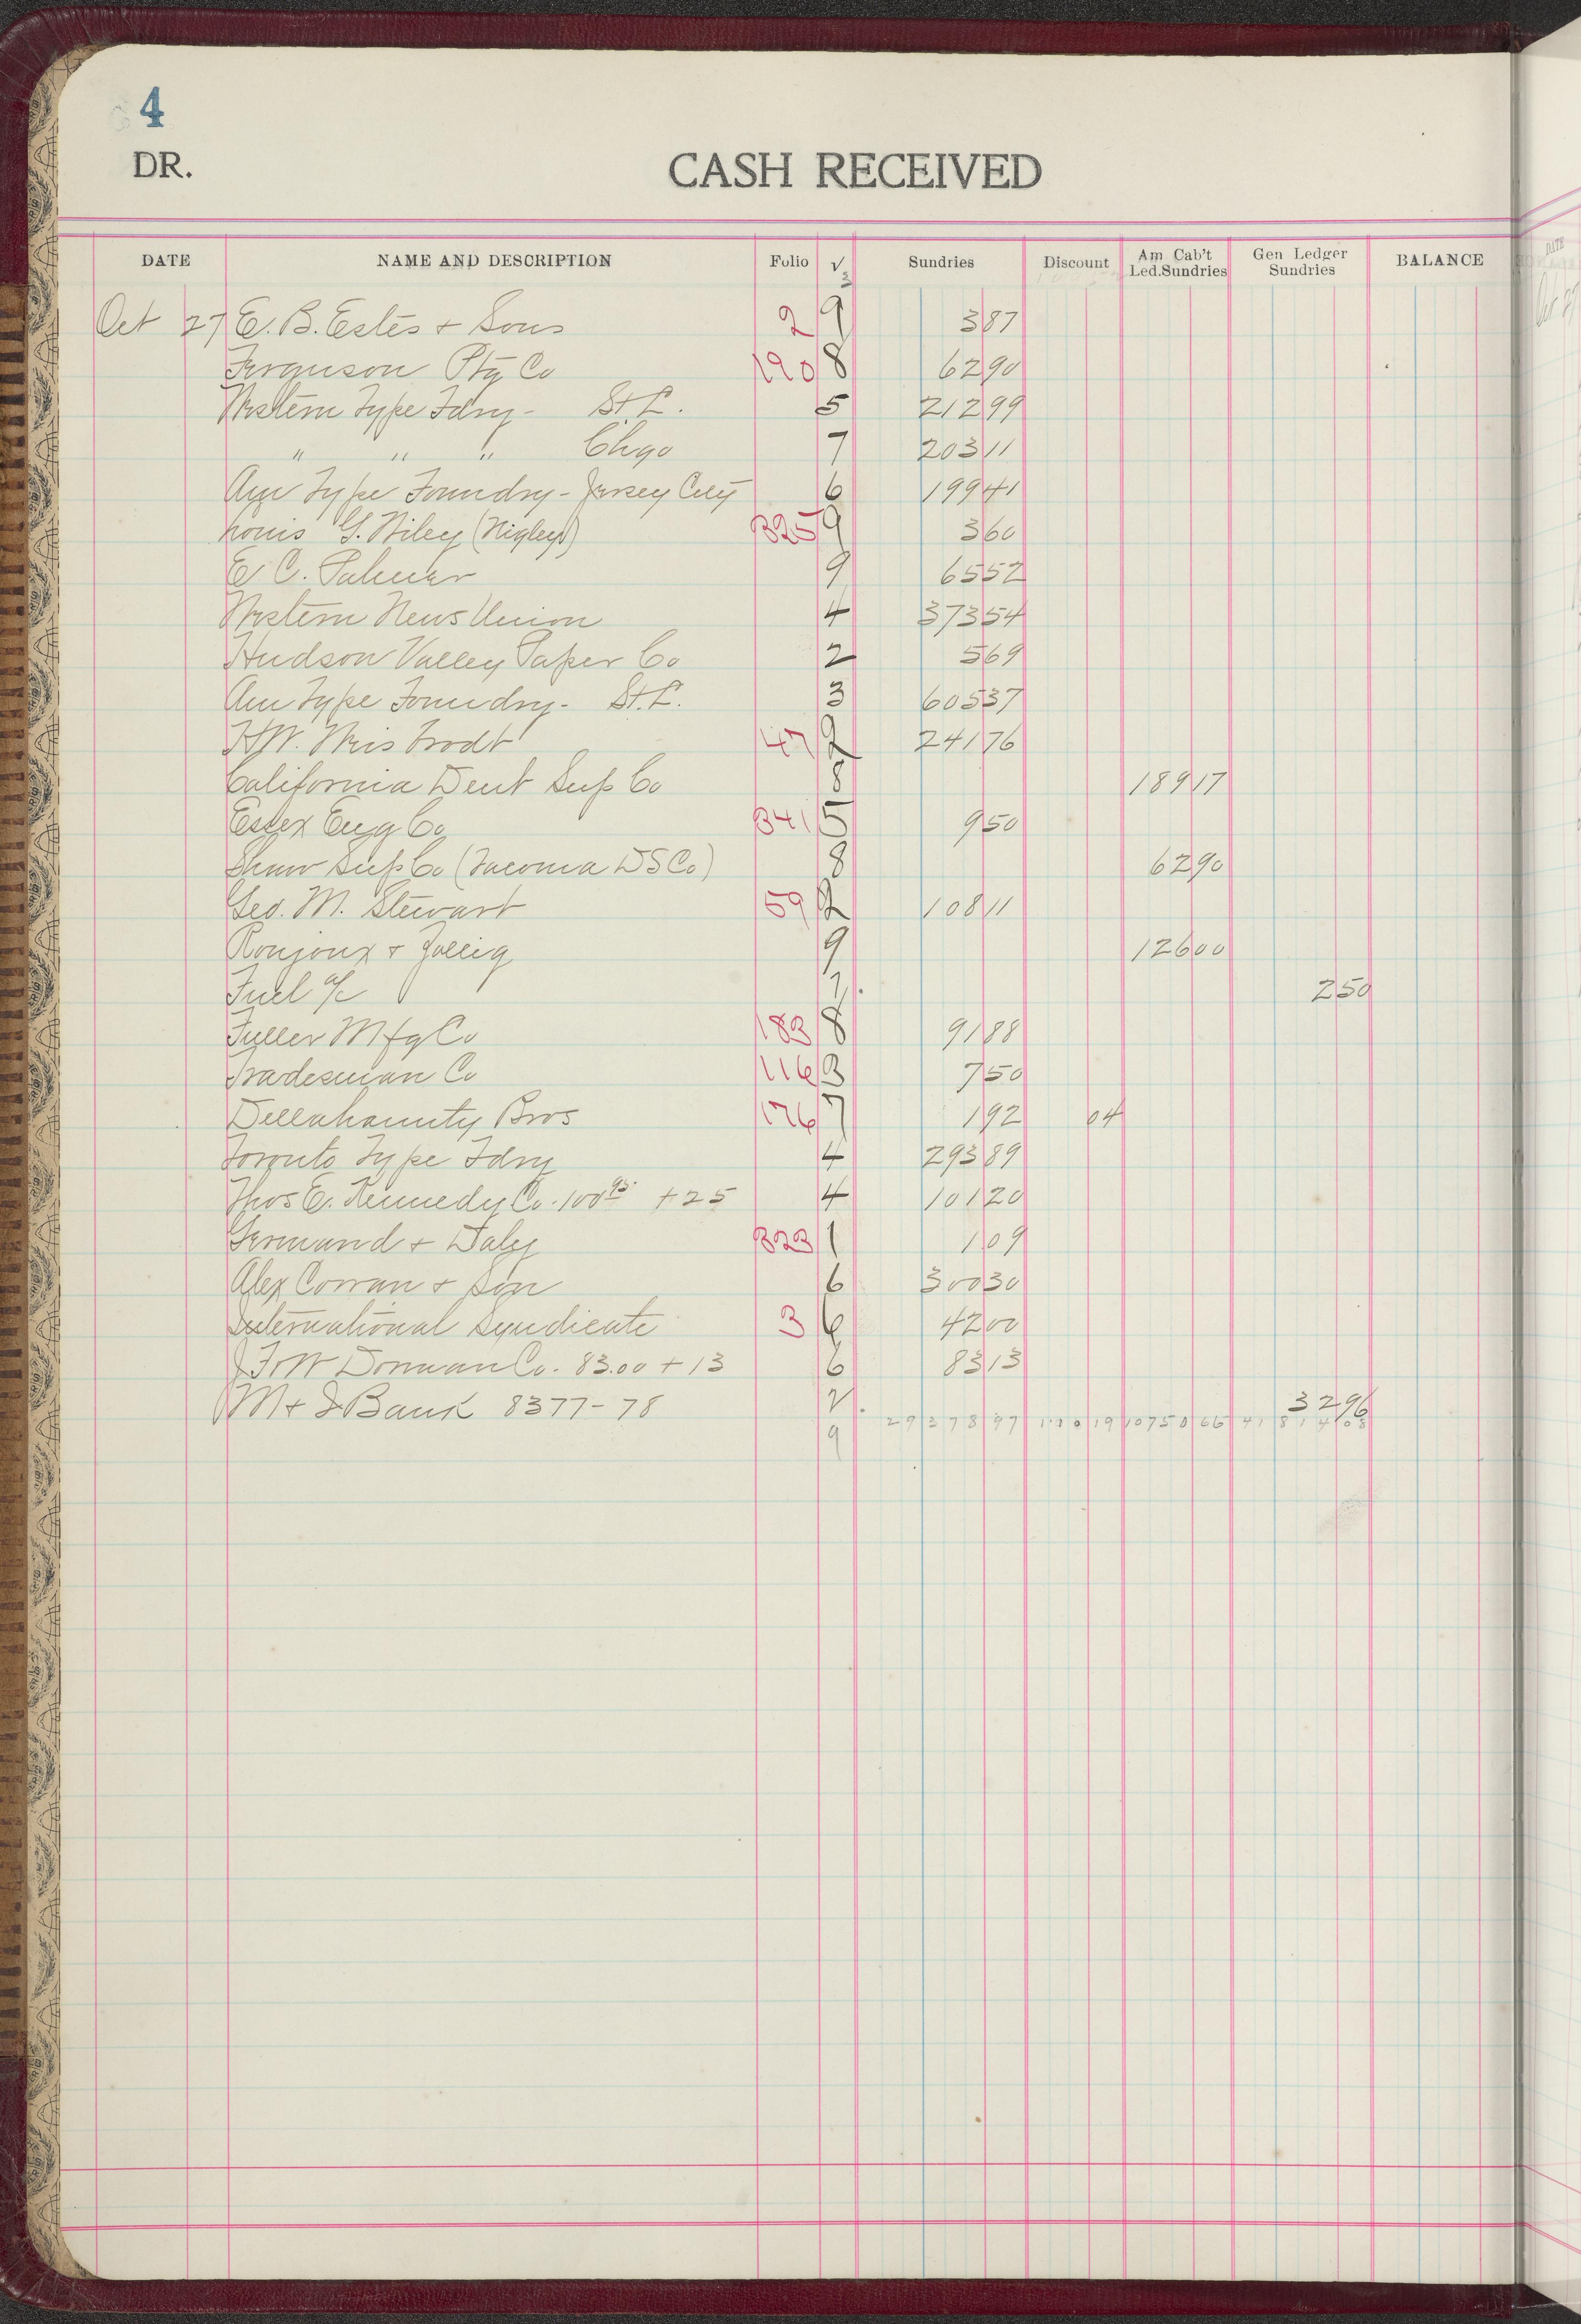 4
DR.
CASH RECEIVED
DATE NAME AND DESCRIPTION Folio √ Sundries Discount Am Cab't Led.Sundries Gen Ledger Sundries BALANCE
3
Oct 27 E. B. Estes + Sons 2 9 3 87
Ferguson Ptg Co 190 8 62 90
Western Type Fdry - St. L. 5 212 99
" " " Chgo 7 203 11
Am Type Foundry - Jersey City 6 199 41
Louis G. Wiley (Nigleys) 325 9 3 60
E C. Palmer 9 65 52
Western News Union 4 373 54
Hudson Valley Paper Co 2 5 69
Am Type Foundry - St. L. 3 605 37
H.W. Weisbrodt 47 2 241 76
California Dent Sup Co 8 189 17
Essex Eng Co 341 5 9 50
Shaw Sup Co (Tacoma D S Co) 8 62 90
Geo. M. Stewart 59 2 108 11
Ronjoux + Jollig 9 126 00
Fuel a/c 2 50
Fuller Mfg Co 183 8 91 88
Tradesman Co 116 3 7 50
Dellahaunty Bros 176 7 1 92 04
Toronto Type Fdry 4 293 89
Thos E. Kennedy Co. 100 95 + 25 4 101 20
Germand + Daley 323 1 1 09
Alex Cowan + Son 6 300 30
International Syndicate 3 6 42 00
J F W Dorman Co. 83.00 + 13 6 83 13
M + I Bank 8377 - 78 2 32 96
9 29 378 97 110 19 10750 66 41 814 08